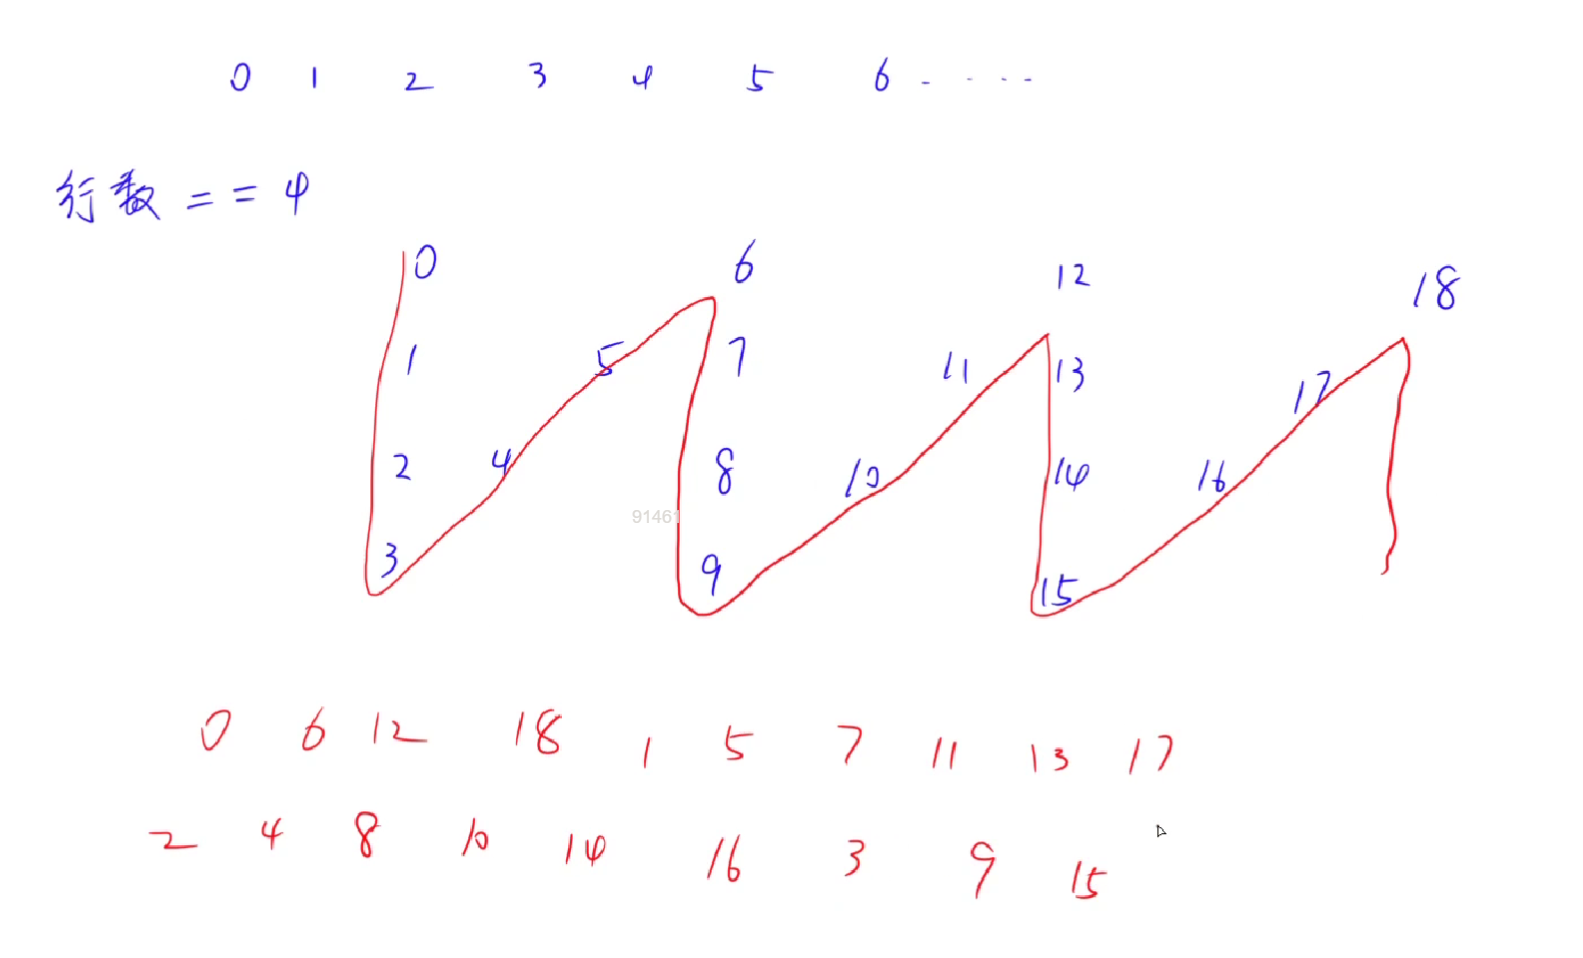 0 1 2 3 4 5 6 - - - -
行数 == 4
0 6 12 18
1 5 7 11 13 17
2 4 8 10 14 16
3 9 15
91461
0 6 12 18 1 5 7 11 13 17
2 4 8 10 14 16 3 9 15